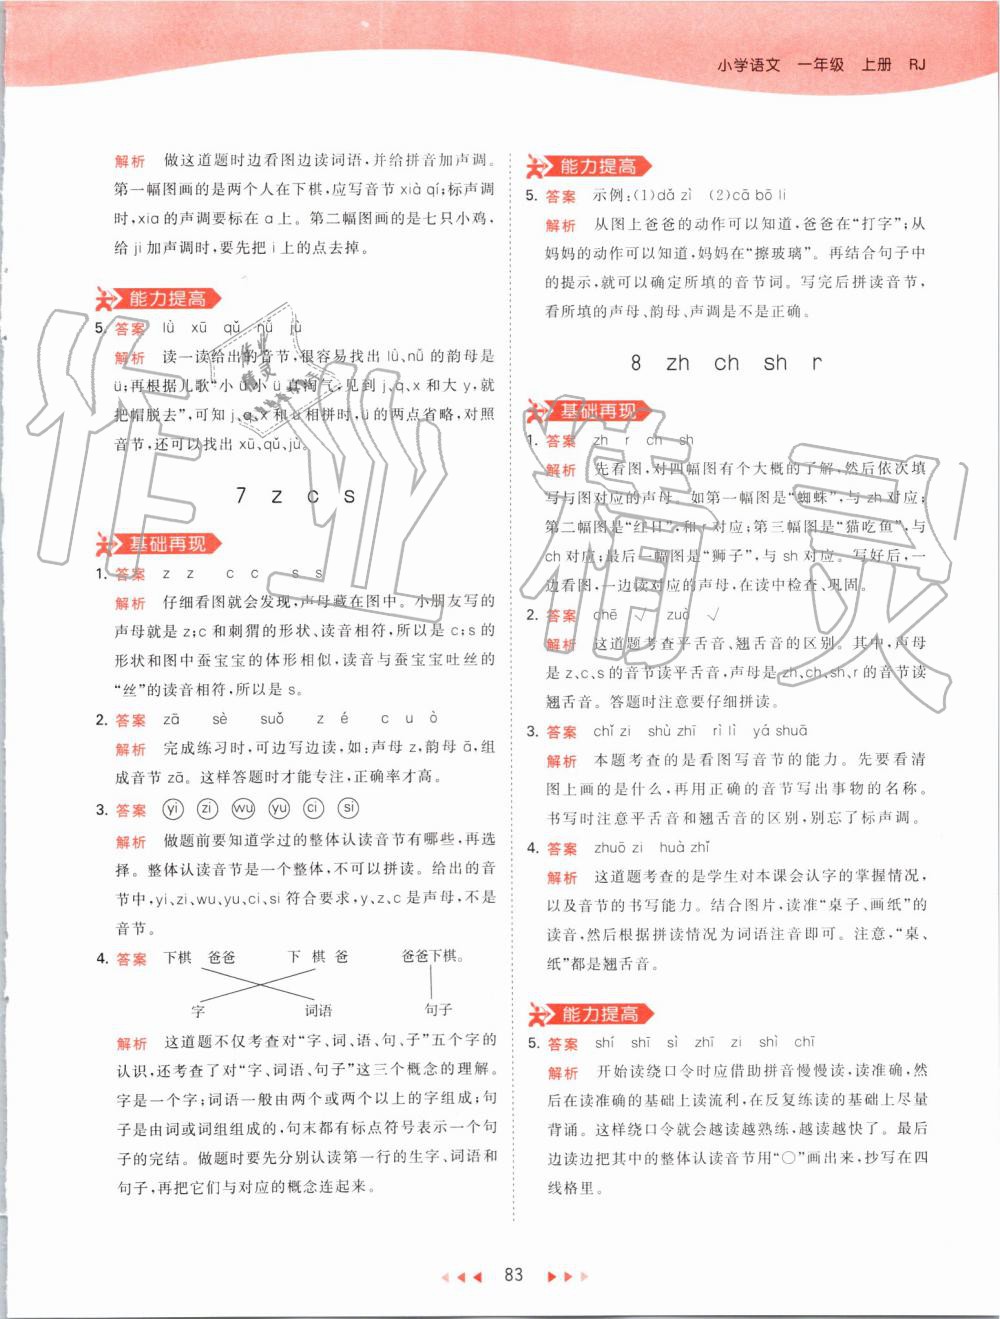 小学语文 一年级 上册 RJ
解析 做这道题时边看图边读词语,并给拼音加声调。
第一幅图画的是两个人在下棋,应写音节 xià qí;标声调
时,xia的声调要标在 a 上。第二幅图画的是七只小鸡,
给 ji 加声调时,要先把 i 上的点去掉。
能力提高
5. 答案 lǜ xū qǔ nǚ jù
解析 读一读给出的音节,很容易找出 lǜ、nǚ 的韵母是
ü;再根据儿歌“小 ü 小 ü 真淘气,见到 j、q、x 和大 y,就
把帽脱去”,可知 j、q、x 和 ü 相拼时,ü 的两点省略,对照
音节,还可以找出 xū、qǔ、jù。
7 z c s
基础再现
1. 答案 z z c c s s
解析 仔细看图就会发现,声母藏在图中。小朋友写的
声母就是 z;c 和刺猬的形状、读音相符,所以是 c;s 的
形状和图中蚕宝宝的体形相似,读音与蚕宝宝吐丝的
“丝”的读音相符,所以是 s。
2. 答案 zā sè suǒ z é c u ò
解析 完成练习时,可边写边读,如:声母 z,韵母 ā,组
成音节 zā。这样答题时才能专注,正确率才高。
3. 答案 yi zi wu yu ci si
解析 做题前要知道学过的整体认读音节有哪些,再选
择。整体认读音节是一个整体,不可以拼读。给出的音
节中,yi、zi、wu、yu、ci、si 符合要求,y、z、c 是声母,不是
音节。
4. 答案 下棋 爸爸 下 棋 爸 爸爸下棋。
字 词语 句子
解析 这道题不仅考查对“字、词、语、句、子”五个字的
认识,还考查了对“字、词语、句子”这三个概念的理解。
字是一个字;词语一般由两个或两个以上的字组成;句
子是由词或词组组成的,句末都有标点符号表示一个句
子的完结。做题时要先分别认读第一行的生字、词语和
句子,再把它们与对应的概念连起来。
能力提高
5. 答案 示例:(1)dǎ zì (2)cā bō li
解析 从图上爸爸的动作可以知道,爸爸在“打字”;从
妈妈的动作可以知道,妈妈在“擦玻璃”。再结合句子中
的提示,就可以确定所填的音节词。写完后拼读音节,
看所填的声母、韵母、声调是不是正确。
8 zh ch sh r
基础再现
1. 答案 zh r ch sh
解析 先看图,对四幅图有个大概的了解,然后依次填
写与图对应的声母。如第一幅图是“蜘蛛”,与 zh 对应;
第二幅图是“红日”,和 r 对应;第三幅图是“猫吃鱼”,与
ch 对应;最后一幅图是“狮子”,与 sh 对应。写好后,一
边看图,一边读对应的声母,在读中检查、巩固。
2. 答案 chē √ zuò √
解析 这道题考查平舌音、翘舌音的区别。其中,声母
是 z、c、s 的音节读平舌音,声母是 zh、ch、sh、r 的音节读
翘舌音。答题时注意要仔细拼读。
3. 答案 chǐ zi shù zhī rì lì yá shuā
解析 本题考查的是看图写音节的能力。先要看清
图上画的是什么,再用正确的音节写出事物的名称。
书写时注意平舌音和翘舌音的区别,别忘了标声调。
4. 答案 zhuō zi huà zhǐ
解析 这道题考查的是学生对本课会认字的掌握情况,
以及音节的书写能力。结合图片,读准“桌子、画纸”的
读音,然后根据拼读情况为词语注音即可。注意,“桌、
纸”都是翘舌音。
能力提高
5. 答案 shí shī sì zhī zi shì chī
解析 开始读绕口令时应借助拼音慢慢读,读准确,然
后在读准确的基础上读流利,在反复练读的基础上尽量
背诵。这样绕口令就会越读越熟练,越读越快了。最后
边读边把其中的整体认读音节用“○”画出来,抄写在四
线格里。
83
作业精灵